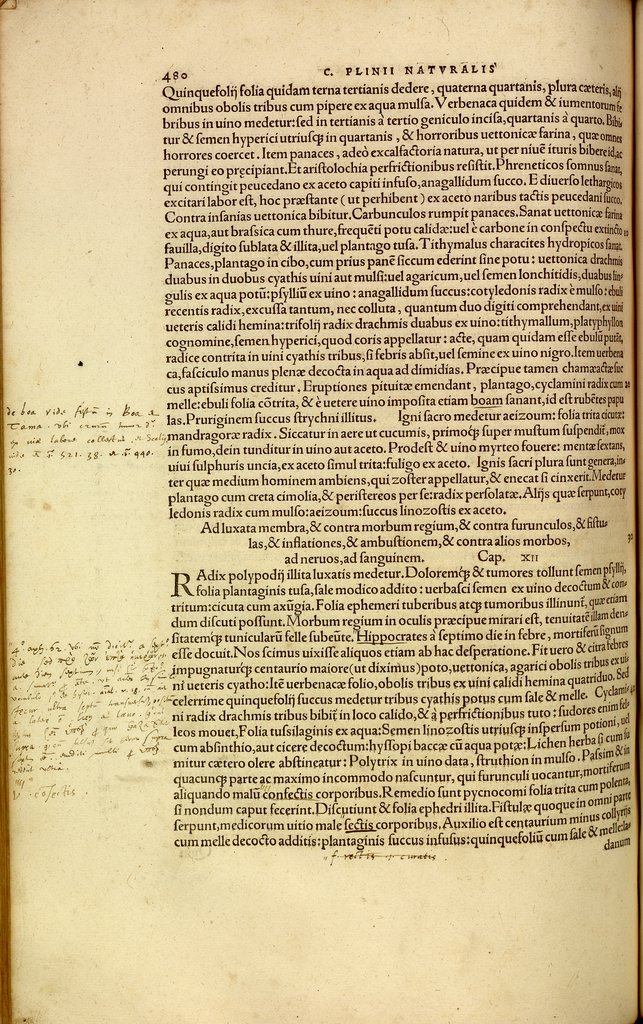 480
C. PLINII NATVRALIS
Quinquefolij folia quidam terna tertianis dedere, quaterna quartanis, plura cæteris, alij
omnibus obolis tribus cum pipere ex aqua mulsa. Verbenaca quidem & iumentorum fe
bribus in uino medetur: sed in tertianis à tertio geniculo incisa, quartanis à quarto. Bibi
tur & semen hyperici utriusq; in quartanis, & horroribus uettonicæ farina, quæ omnes
horrores coercet. Item panaces, adeò excalfactoria natura, ut per niuē ituris bibere id, ac
perungi eo præcipiant. Et aristolochia perfrictionibus resistit. Phreneticos somnus sanat,
qui contingit peucedano ex aceto capiti infuso, anagallidum succo. E diuerso lethargicos
excitari labor est, hoc præstante (ut perhibent) ex aceto naribus tactis peucedani succo.
Contra insanias uettonica bibitur. Carbunculos rumpit panaces. Sanat uettonicæ farina
ex aqua, aut brassica cum thure, frequēti potu calidæ: uel è carbone in conspectu extincto 10
fauilla, digito sublata & illita, uel plantago tusa. Tithymalus characites hydropicos sanat.
Panaces, plantago in cibo, cum prius panē siccum ederint sine potu: uettonica drachmis
duabus in duobus cyathis uini aut mulsi: uel agaricum, uel semen lonchitidis, duabus lin
gulis ex aqua potū: psylliū ex uino: anagallidum succus: cotyledonis radix è mulso: ebuli
recentis radix, excussa tantum, nec colluta, quantum duo digiti comprehendant, ex uini
ueteris calidi hemina: trifolij radix drachmis duabus ex uino: tithymallum, platyphyllon
cognomine, semen hyperici, quod coris appellatur: acte, quam quidam esse ebulū putāt,
radice contrita in uini cyathis tribus, si febris absit, uel semine ex uino nigro. Item uerbena
ca, fasciculo manus plenæ decocta in aqua ad dimidias. Præcipue tamen chamæactæ suc
cus aptissimus creditur. Eruptiones pituitæ emendant, plantago, cyclamini radix cum 20
melle: ebuli folia cōtrita, & è uetere uino imposita etiam boam sanant, id est rubētes papu
las. Pruriginem succus strychni illitus. Igni sacro medetur aeizoum: folia trita cicutæ:
mandragoræ radix. Siccatur in aere ut cucumis, primoq; super mustum suspendit, mox
in fumo, dein tunditur in uino aut aceto. Prodest & uino myrteo fouere: mentæ sextans,
uiui sulphuris uncia, ex aceto simul trita: fuligo ex aceto. Ignis sacri plura sunt genera, in
ter quæ medium hominem ambiens, qui zoster appellatur, & enecat si cinxerit. Medetur
plantago cum creta cimolia, & peristereos per se: radix persolatæ. Alijs quæ serpunt, coty
ledonis radix cum mulso: aeizoum: succus linozostis ex aceto.
Ad luxata membra, & contra morbum regium, & contra furunculos, & fistu
las, & inflationes, & ambustionem, & contra alios morbos, 30
ad neruos, ad sanguinem. Cap. XII
RAdix polypodij illita luxatis medetur. Doloremq; & tumores tollunt semen psyllij,
folia plantaginis tusa, sale modico addito: uerbasci semen ex uino decoctum & con
tritum: cicuta cum axūgia. Folia ephemeri tuberibus atq; tumoribus illinunt, quæ etiam
dum discuti possunt. Morbum regium in oculis præcipue mirari est, tenuitatē illam den
sitatemq; tunicularū felle subeūte. Hippocrates à septimo die in febre, mortiferū signum
esse docuit. Nos scimus uixisse aliquos etiam ab hac desperatione. Fit uero & citra febres
impugnaturq; centaurio maiore (ut diximus) poto, uettonica, agarici obolis tribus ex ui
ni ueteris cyatho: Itē uerbenacæ folio, obolis tribus ex uini calidi hemina quatriduo. Sed
celerrime quinquefolij succus medetur tribus cyathis potus cum sale & melle. Cyclami
ni radix drachmis tribus bibit in loco calido, & à perfrictionibus tuto: sudores enim fel
leos mouet, Folia tussilaginis ex aqua: Semen linozostis utriusq; inspersum potioni, uel
cum absinthio, aut cicere decoctum: hyssopi baccæ cū aqua potæ: Lichen herba si cum su
mitur cætero olere abstineatur: Polytrix in uino data, struthion in mulso. Passim & in
quacunq; parte ac maximo incommodo nascuntur, qui furunculi uocantur, mortiferum
aliquando malū confectis corporibus. Remedio sunt pycnocomi folia trita cum polenta,
si nondum caput fecerint. Discutiunt & folia ephedri illita. Fistulæ quoque in omni parte
serpunt, medicorum uitio male sectis corporibus. Auxilio est centaurium minus collyrijs
cum melle decocto additis: plantaginis succus infusus: quinquefoliū cum sale & melle: la-
danum